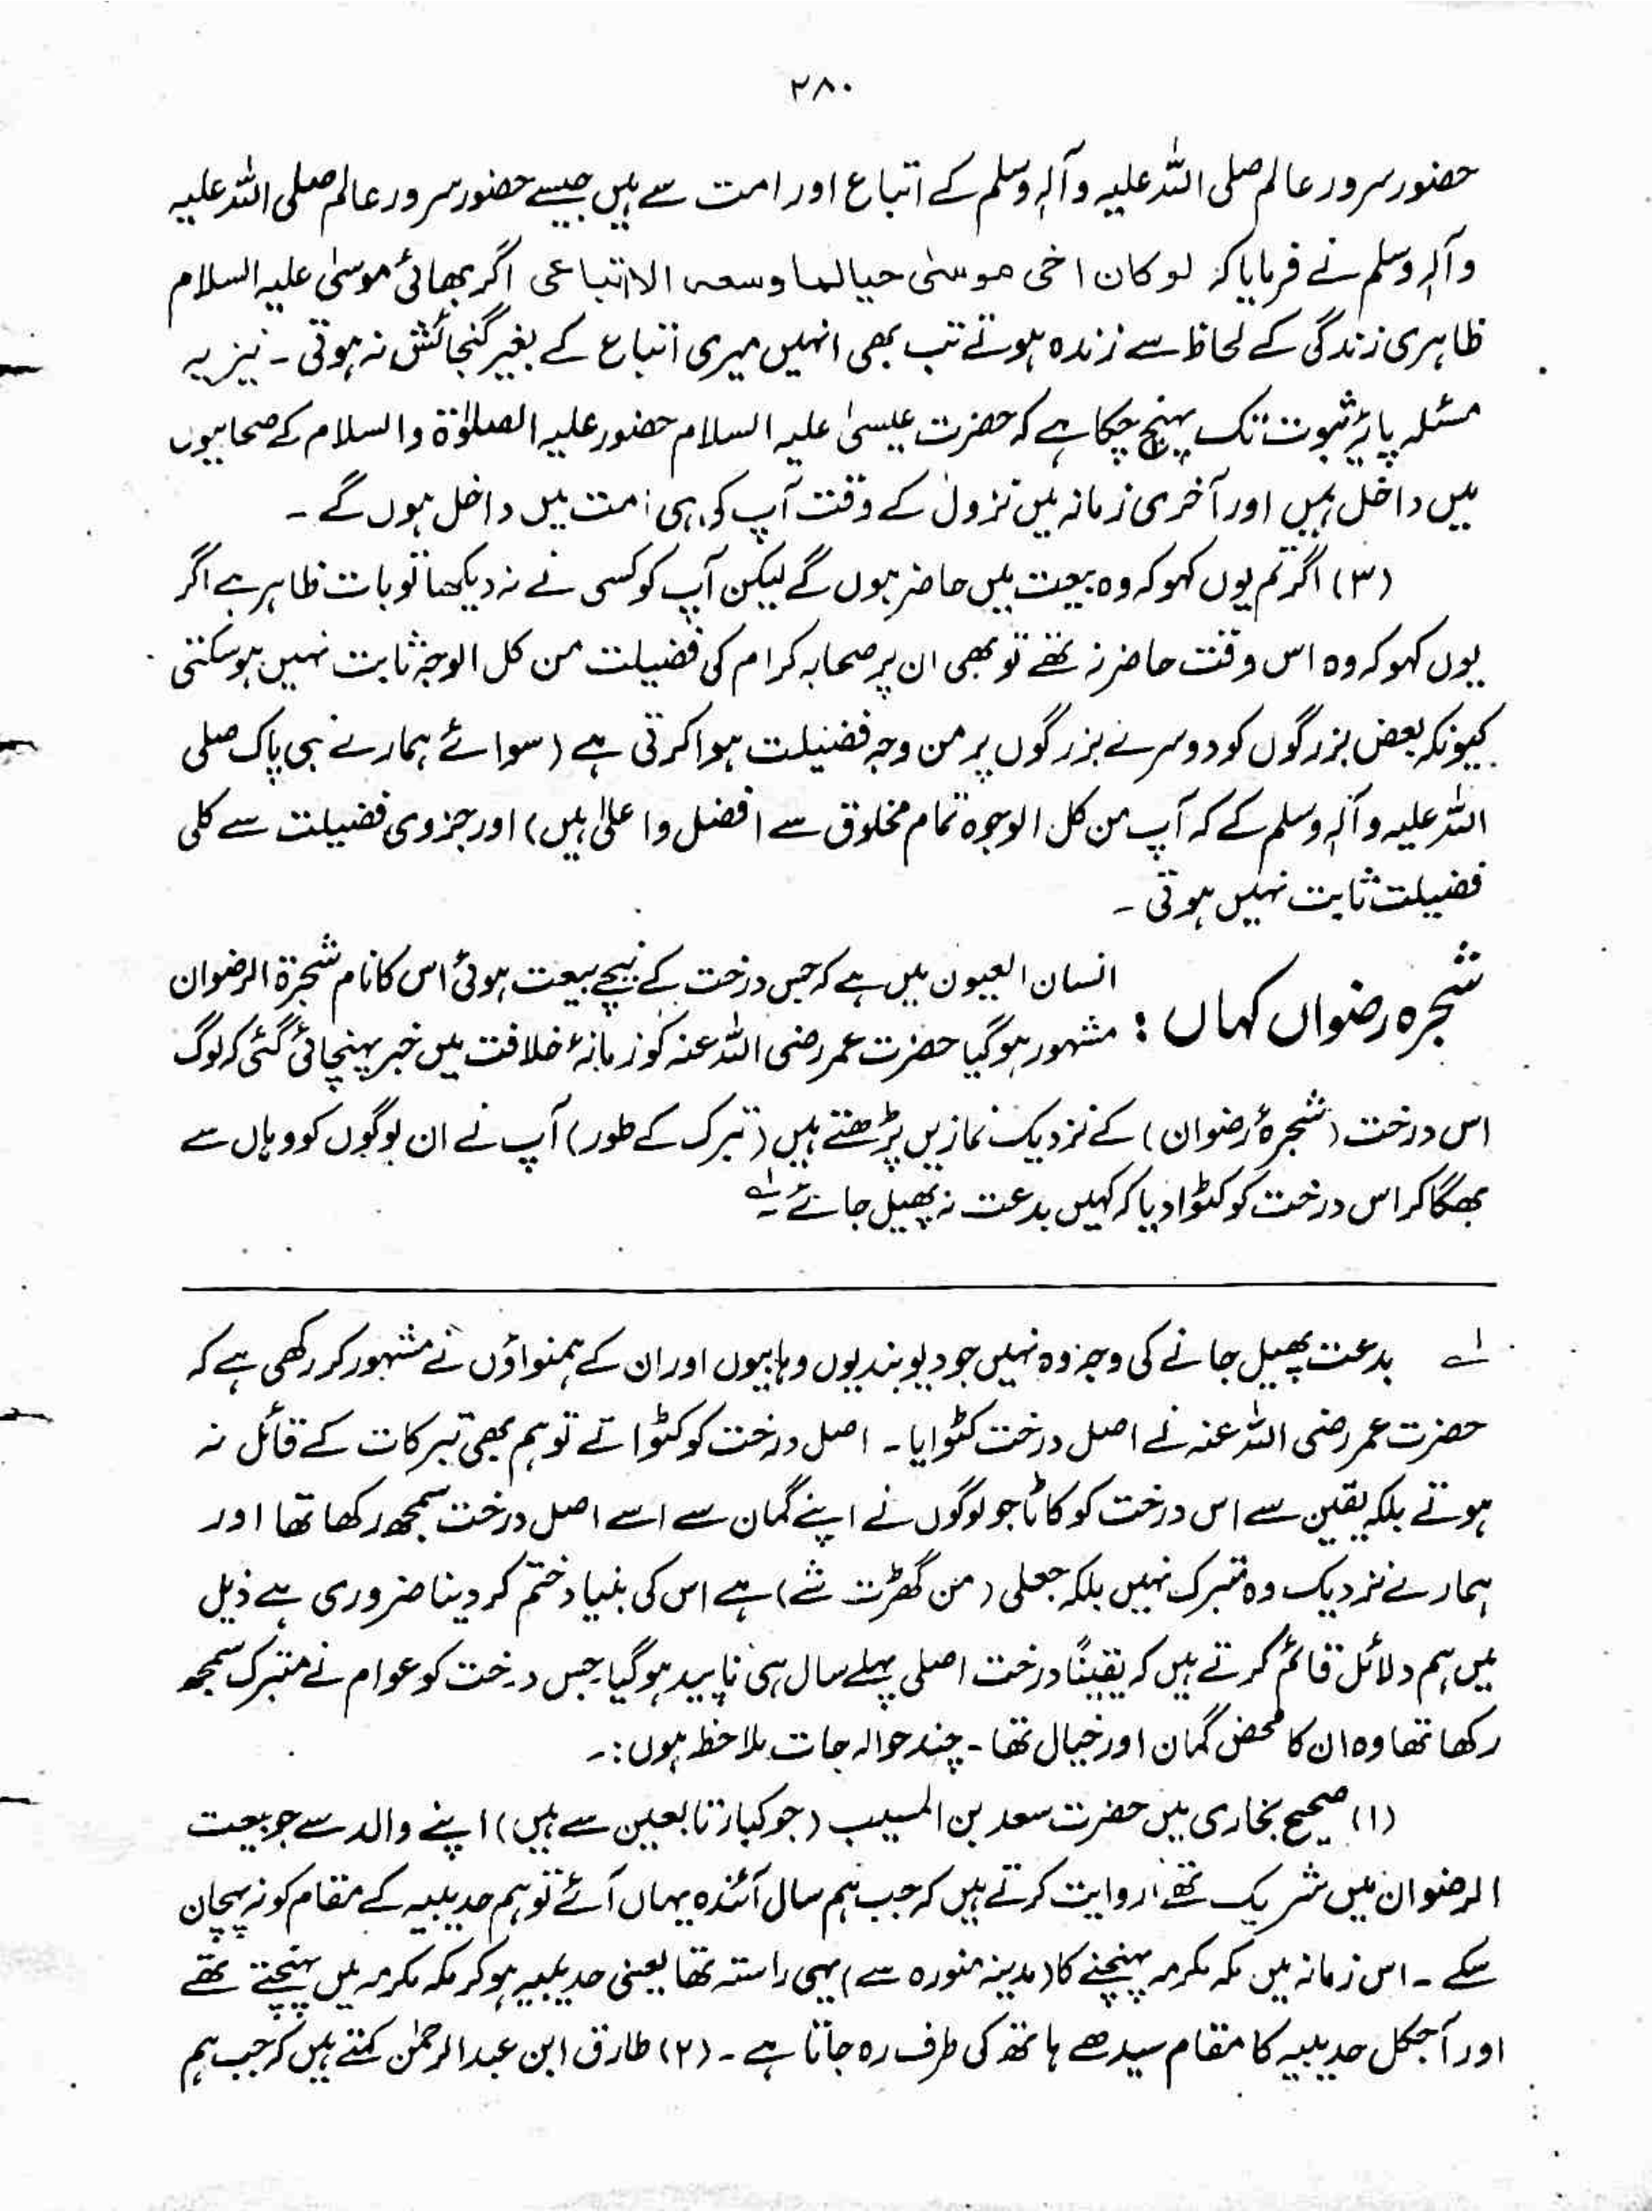 ۲۸۰
حضور سرور عالم صلی اللہ علیہ وآلہٖ وسلم کے اتباع اور امت سے ہیں جیسے حضور سرور عالم صلی اللہ علیہ
وآلہٖ وسلم نے فرمایا کہ لو کان اخی موسیٰ حیا لما وسعہ الا اتباعی اگر بھائی موسیٰ علیہ السلام
ظاہری زندگی کے لحاظ سے زندہ ہوتے تب بھی انہیں میری اتباع کے بغیر گنجائش نہ ہوتی ۔ نیز یہ
مسئلہ پایۂ ثبوت تک پہنچ چکا ہے کہ حضرت عیسیٰ علیہ السلام حضور علیہ الصلوٰۃ والسلام کے صحابیوں
میں داخل ہیں اور آخری زمانہ میں نزول کے وقت آپ کی ہی امت میں داخل ہوں گے ۔
(۳) اگر تم یوں کہو کہ وہ بیعت میں حاضر ہوں گے لیکن آپ کو کسی نے نہ دیکھا تو بات ظاہر ہے اگر
یوں کہو کہ وہ اس وقت حاضر نہ تھے تو بھی ان پر صحابہ کرام کی فضیلت من کل الوجہ ثابت نہیں ہوسکتی
کیونکہ بعض بزرگوں کو دوسرے بزرگوں پر من وجہ فضیلت ہوا کرتی ہے (سوائے ہمارے نبی پاک صلی
اللہ علیہ وآلہٖ وسلم کے کہ آپ من کل الوجوہ تمام مخلوق سے افضل واعلیٰ ہیں) اور جزوی فضیلت سے کلی
فضیلت ثابت نہیں ہوتی ۔
شجرہ رضواں کہاں : انسان العیون میں ہے کہ جس درخت کے نیچے بیعت ہوئی اس کا نام شجرۃ الرضوان
مشہور ہوگیا حضرت عمر رضی اللہ عنہ کو زمانۂ خلافت میں خبر پہنچائی گئی کہ لوگ
اس درخت (شجرۂ رضوان) کے نزدیک نمازیں پڑھتے ہیں (تبرک کے طور) آپ نے ان لوگوں کو وہاں سے
بھگا کر اس درخت کو کٹوا دیا کہ کہیں بدعت نہ پھیل جائے ۔ لہ
لہ بدعت پھیل جانے کی وجہ وہ نہیں جو دیوبندیوں وہابیوں اور ان کے ہمنواؤں نے مشہور کر رکھی ہے کہ
حضرت عمر رضی اللہ عنہ نے اصل درخت کٹوایا ۔ اصل درخت کو کٹواتے تو ہم بھی تبرکات کے قائل نہ
ہوتے بلکہ یقین سے اس درخت کو کاٹا جو لوگوں نے اپنے گمان سے اسے اصل درخت سمجھ رکھا تھا اور
ہمارے نزدیک وہ تبرک نہیں بلکہ جعلی (من گھڑت شے) ہے اس کی بنیاد ختم کر دینا ضروری ہے ذیل
میں ہم دلائل قائم کرتے ہیں کہ یقیناً درخت اصلی پہلے سال ہی ناپید ہوگیا جس درخت کو عوام نے متبرک سمجھ
رکھا تھا وہ ان کا محض گمان اور خیال تھا ۔ چند حوالہ جات ملاحظہ ہوں :۔
(۱) صحیح بخاری میں حضرت سعد بن المسیب (جو کبار تابعین سے ہیں) اپنے والد سے جو بیعت
الرضوان میں شریک تھے روایت کرتے ہیں کہ جب ہم سال آئندہ یہاں آئے تو ہم حدیبیہ کے مقام کو نہ پہچان
سکے ۔ اس زمانہ میں مکہ مکرمہ پہنچنے کا (مدینہ منورہ سے) یہی راستہ تھا یعنی حدیبیہ ہو کر مکہ مکرمہ میں پہنچتے تھے
اور آجکل حدیبیہ کا مقام سیدھے ہاتھ کی طرف رہ جاتا ہے ۔ (۲) طارق ابن عبدالرحمٰن کہتے ہیں کہ جب ہم